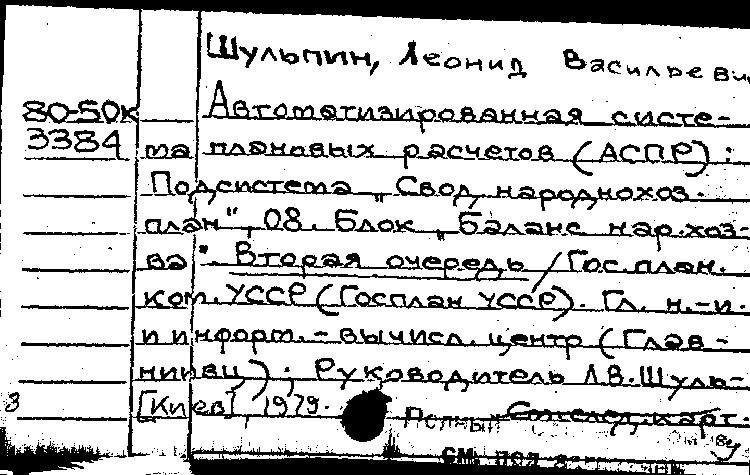 Шульпин, Леонид Василье
80-50к Автоматизированная систе-
3384 ма плановых расчетов (АСПР):
Подсистема „Свод. народнохоз.
план", 08. Блок „Баланс нар.хоз-
ва". Вторая очередь / Гос.план.
ком. УССР (Госплан УССР). Гл. н.-и.
и информ.-вычисл. центр (Глав-
нии вц) ; Руководитель Л.В. Шуль-
[Киев], 1979.
Полный
см. под